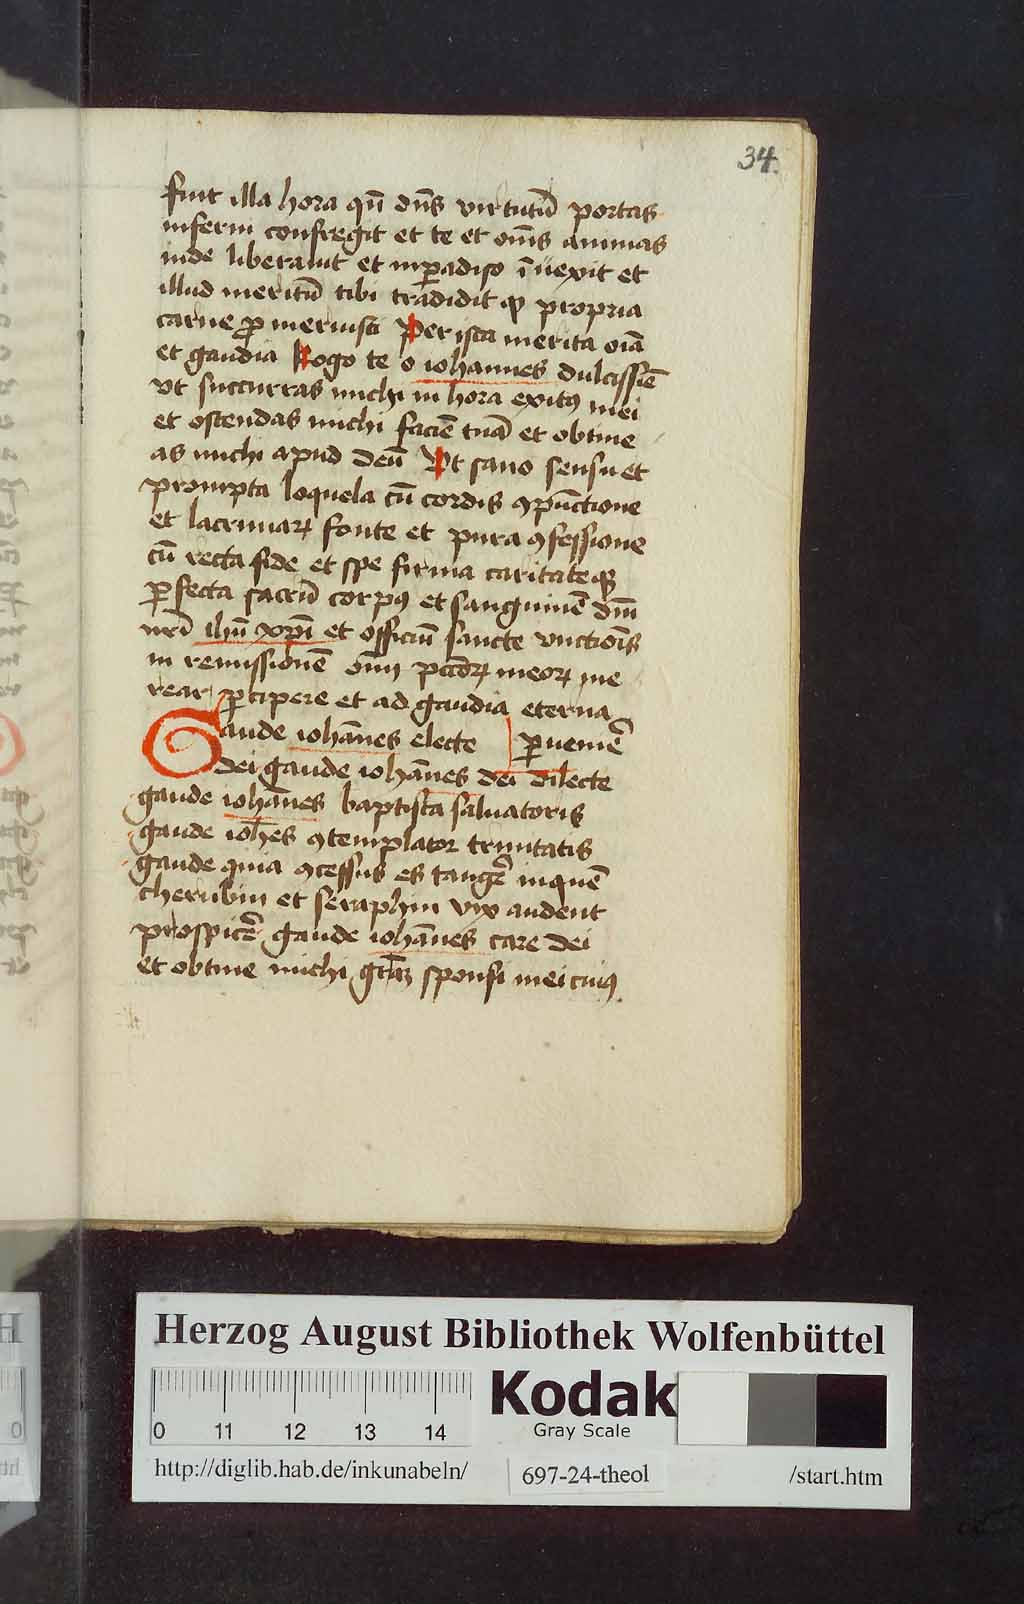 34.
fuit illa hora qn̄ dn̄s virtutū portas
inferni confregit et te et om̄s animas
inde liberauit et inꝑadiso īuexit et
illud meritū tibi tradidit qͩ propria
carne ꝓmeruisti Per ista merita oīa
et gaudia Rogo te o iohannes dulcissīe
vt succurras michi in hora exitꝰ mei
et ostendas michi faciē tuā et obtine
as michi apud deū Vt sano sensu et
prompta loquela cū cordis ꝯpūctione
et lacrimaꝝ fonte et pura ꝯfessione
cū recta fide et spe firma caritateqꝫ
ꝑfecta sacrū corpꝰ et sanguinē dn̄i
nr̄i ihū xp̄i et officiū sancte vnctiōis
in remissionē om̄i pctōꝝ meoꝝ me
rear ꝑcipere et ad gaudia eterna
Gaude iohānes electe ꝑuenire
dei gaude iohānes dei dilecte
gaude iohānes baptista saluatoris
gaude ioh̄es ꝯtemplator trinitatis
gaude quia ꝯcessus es tangē inquē
cherubin et seraphin vix audent
prospicē gaude iohānes care dei
et obtine michi grāꝫ sponsi mei cuiꝰ
Herzog August Bibliothek Wolfenbüttel
0 11 12 13 14
Kodak
Gray Scale
http://diglib.hab.de/inkunabeln/ 697-24-theol /start.htm